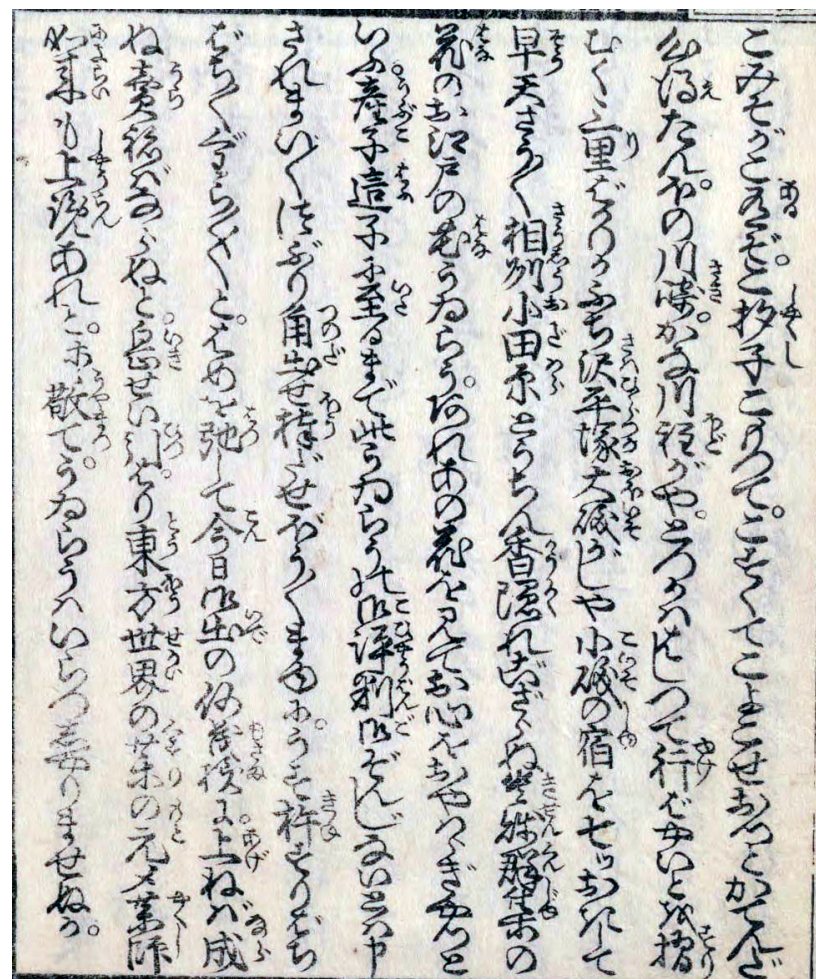 こみそがこ有ぞ。杓子こもつて。こすくてこよこせおつとがてんだ
心得たんぼの川崎。かな川程がや。とつかははしつて行ばやいとを摺
むく三里ばかりかふぢ沢平塚大磯がしや小磯の宿を七ツおきして
早天さう〳〵相州小田原とうちん香隠れござらぬ貴賤群集の
花のお江戸の花うゐらう。アレあの花を見てお心をおやはらぎやつと
いふ産子這子に至るまで此うゐらうの御評判御ぞんじないとは申
されまい〳〵つぶり角出せ棒だせぼう〳〵まゆに。うす杵すりばち
ばち〳〵ぐわら〳〵〳〵と。はめを弛して今日御出の何茂様に。上ねば成
ぬ売ねばならぬと。息せい引ぱり。東方世界の薬の元〆薬師
如来も上覧あれと。ホヽ敬て。うゐらうはいらつ舎りませぬか。